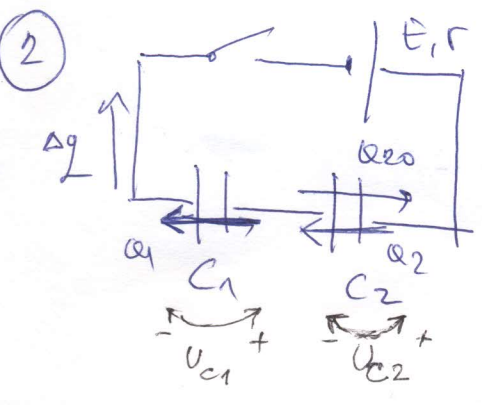 2
E, r
Δq
Q20
Q1
Q2
C1
C2
- +
- +
UC1
UC2